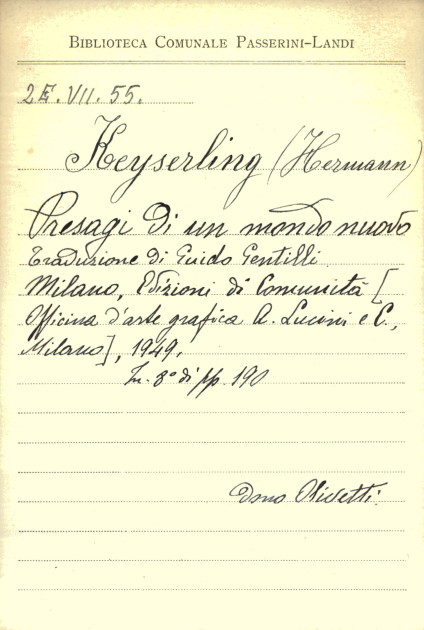 BIBLIOTECA COMUNALE PASSERINI-LANDI
2E.VII.55.
Keyserling (Hermann)
Presagi di un mondo nuovo
Traduzione di Guido Gentilli
Milano, Edizioni di Comunità [
Officina d'arte grafica A. Lucini e C.,
Milano], 1949.
In. 8° di pp. 190
Dono Olivetti.